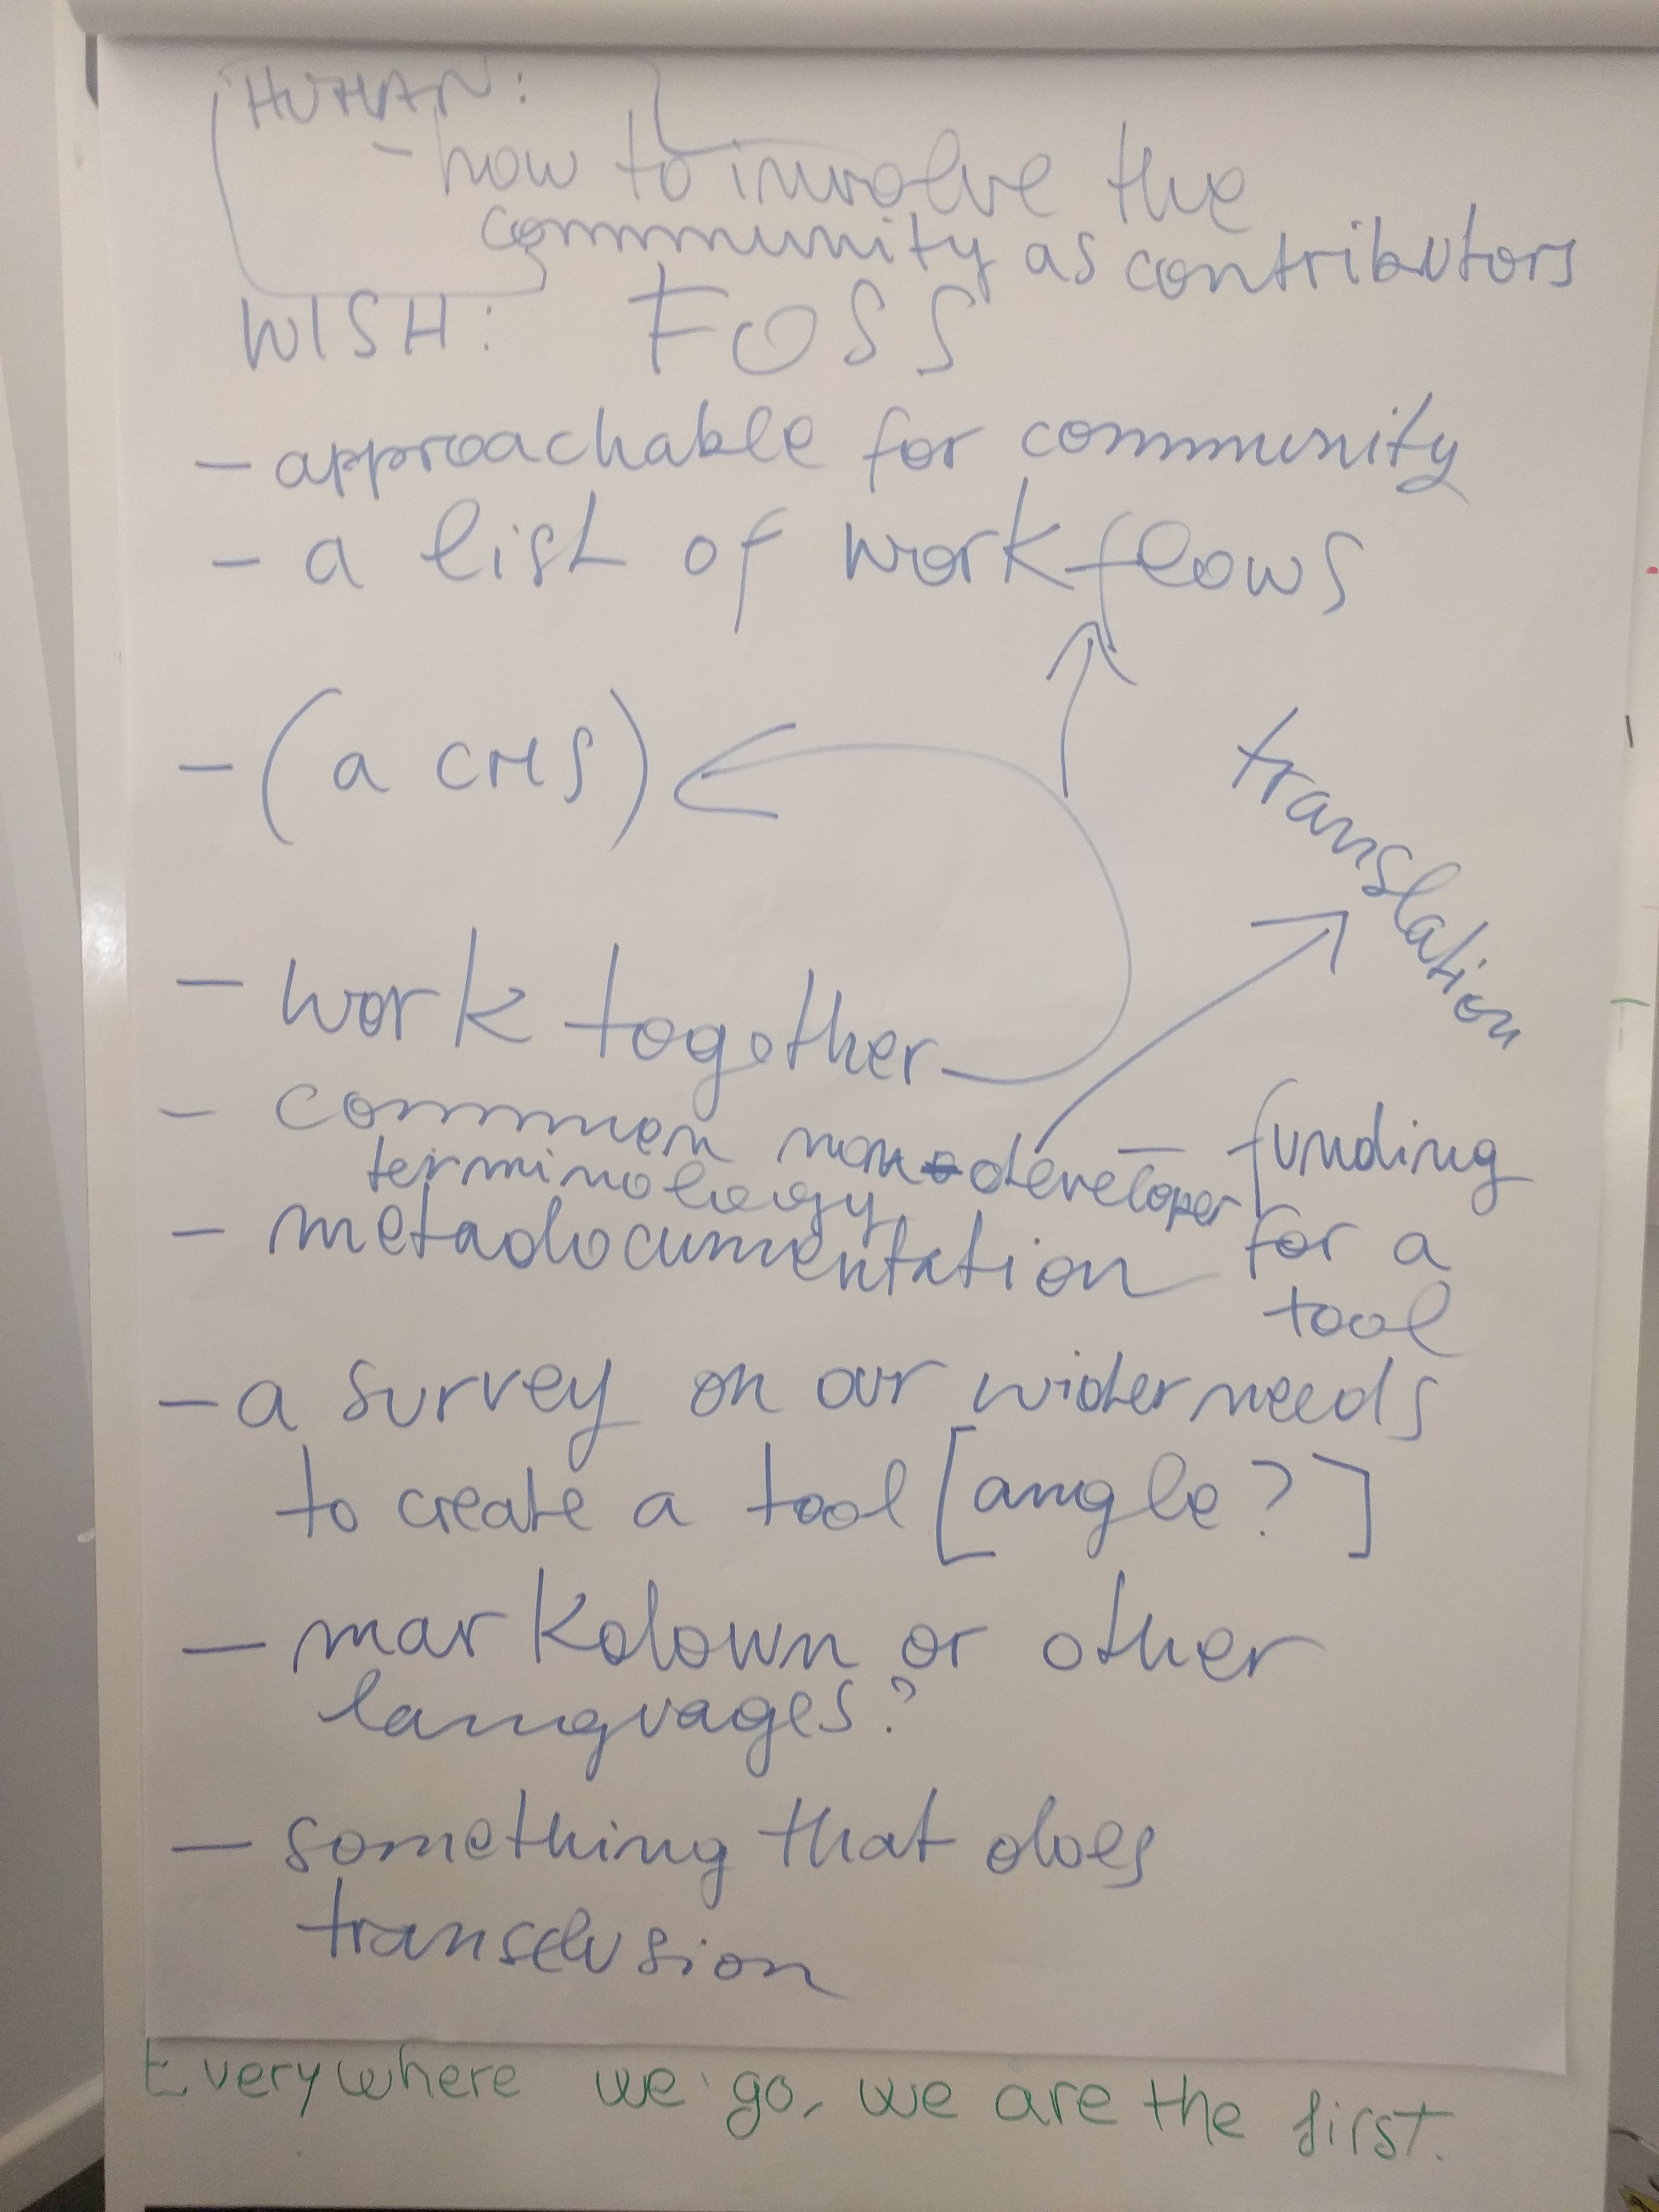 HUMAN:
- how to involve the
community as contributors
WISH: FOSS
- approachable for community
- a list of workflows
- (a CMS)
translation
- work together
- common non-developer
terminology
- funding
for a
tool
- metadocumentation
- a survey on our wider needs
to create a tool [angle?]
- markdown or other
languages?
- something that does
transclusion
Everywhere we go, we are the first.